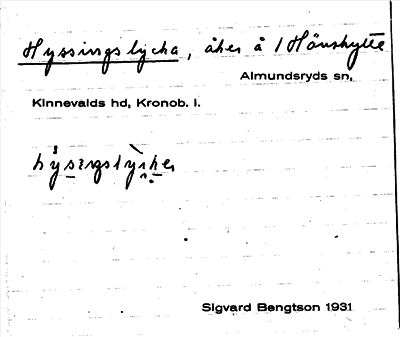 Hyssingslycka, åker å 1 Hönshylte
Almundsryds sn,
Kinnevalds hd, Kronob. l.
Sigvard Bengtson 1931